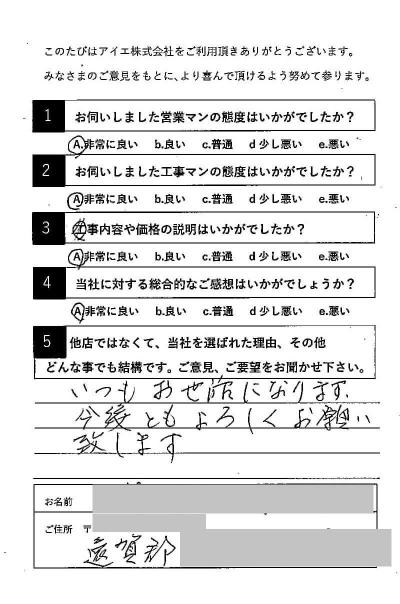 このたびはアイエ株式会社をご利用頂きありがとうございます。
みなさまのご意見をもとに、より喜んで頂けるよう努めて参ります。
1 お伺いしました営業マンの態度はいかがでしたか？
A.非常に良い b.良い c.普通 d 少し悪い e.悪い
2 お伺いしました工事マンの態度はいかがでしたか？
A.非常に良い b.良い c.普通 d 少し悪い e.悪い
3 工事内容や価格の説明はいかがでしたか？
A.非常に良い b.良い c.普通 d 少し悪い e.悪い
4 当社に対する総合的なご感想はいかがでしょうか？
A.非常に良い b.良い c.普通 d 少し悪い e.悪い
5 他店ではなくて、当社を選ばれた理由、その他
どんな事でも結構です。ご意見、ご要望をお聞かせ下さい。
いつもお世話になります
今後ともよろしくお願い
致します
お名前
ご住所 〒
遠賀郡